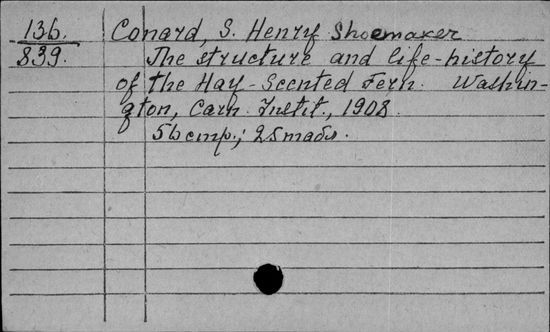 136. Conard, S. Henry Shoemaker
839. The structure and life-history
of the Hay-Scented Fern. Washin-
gton, Carn. Instit., 1908.
56 стр.;